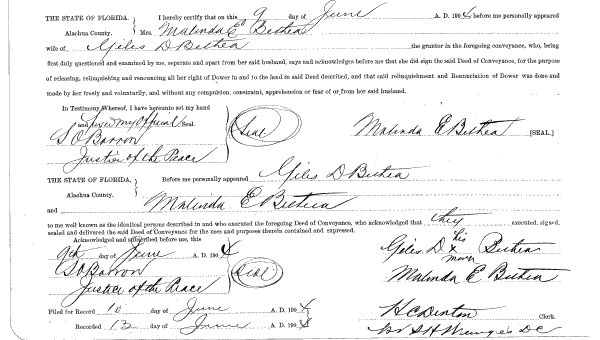 THE STATE OF FLORIDA. I hereby certify that on this 9 day of June A. D. 1904 before me personally appeared
Alachua County. Mrs. Malinda E Bethea
wife of Giles D Bethea the grantor in the foregoing conveyance, who, being
first duly questioned and examined by me, separate and apart from her said husband, says and acknowledges before me that she did sign the said Deed of Conveyance, for the purpose
of releasing, relinquishing and renouncing all her right of Dower in and to the land in said Deed described, and that said relinquishment and Renunciation of Dower was done and
made by her freely and voluntarily, and without any compulsion, constraint, apprehension or fear of or from her said husband.
In Testimony Whereof, I have hereunto set my hand
and my Official Seal.
S O Barron Seal Malinda E Bethea [SEAL.]
Justice of the Peace
THE STATE OF FLORIDA, Before me personally appeared Giles D Bethea
Alachua County.
and Malinda E Bethea
to me well known as the identical persons described in and who executed the foregoing Deed of Conveyance, who acknowledged that they executed, signed,
sealed and delivered the said Deed of Conveyance for the uses and purposes therein contained and expressed.
Acknowledged and subscribed before me, this
9th day of June A. D. 1904 Giles D his x mark Bethea
S O Barron Seal Malinda E Bethea
Justice of the Peace
Filed for Record 10 day of June A. D. 1904 H C Denton Clerk.
Recorded 13 day of June A. D. 1904 D C